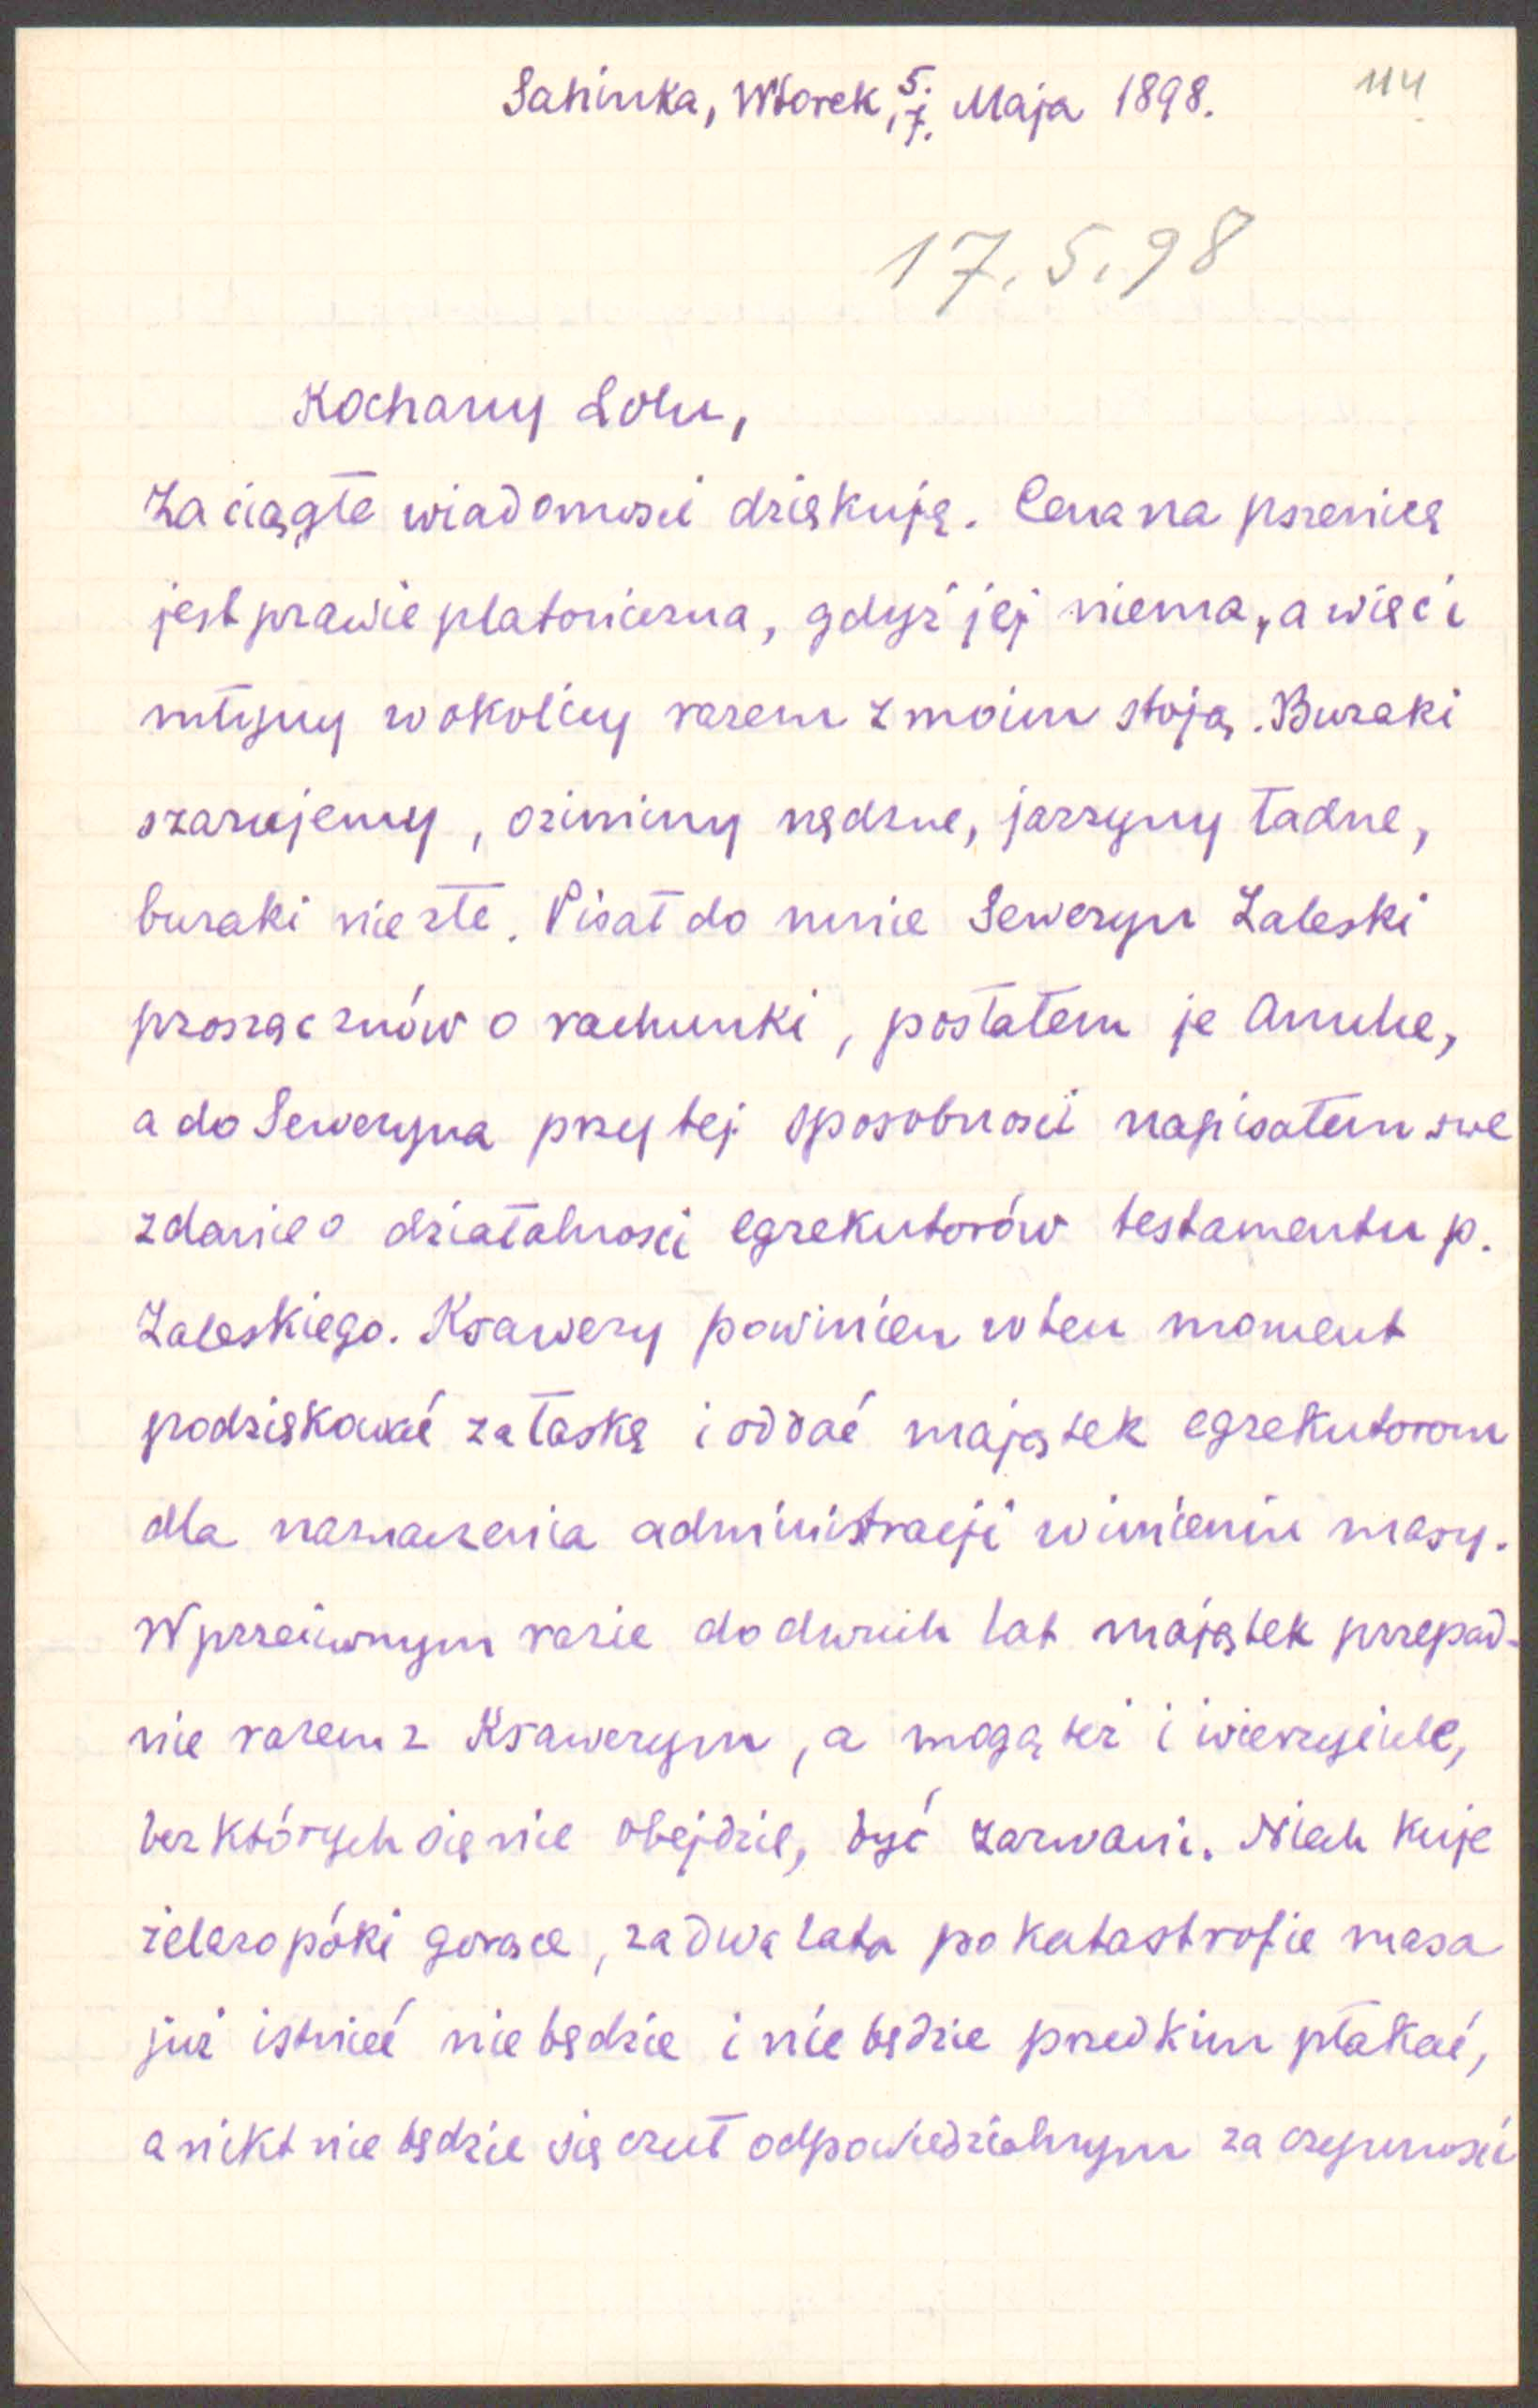 Sahinka, Wtorek, 5./7. Maja 1898.
114
17.5.98
Kochany Lolu,
Za ciągłe wiadomości dziękuję. Cena na pszenicę
jest prawie platoniczna, gdyż jej niema, a więc i
młyny w okolicy razem z moim stoją. Buraki
szarujemy, oziminy nędzne, jarzyny ładne,
buraki niezłe. Pisał do mnie Seweryn Zaleski
prosząc znów o rachunki, posłałem je Anulce,
a do Seweryna przy tej sposobności napisałem swe
zdanie o działalności egzekutorów testamentu p.
Zaleskiego. Ksawery powinien w ten moment
podziękować za łaskę i oddać majątek egzekutorom
dla naznaczenia administracji w imieniu masy.
W przeciwnym razie do dwóch lat majątek przepad-
nie razem z Ksawerym, a mogą też i wierzyciele,
bez których się nie obejdzie, być zarwani. Niech kuje
żelazo póki gorące, za dwa lata po katastrofie masa
już istnieć nie będzie i nie będzie przed kim płakać,
a nikt nie będzie się czuł odpowiedzialnym za czynności